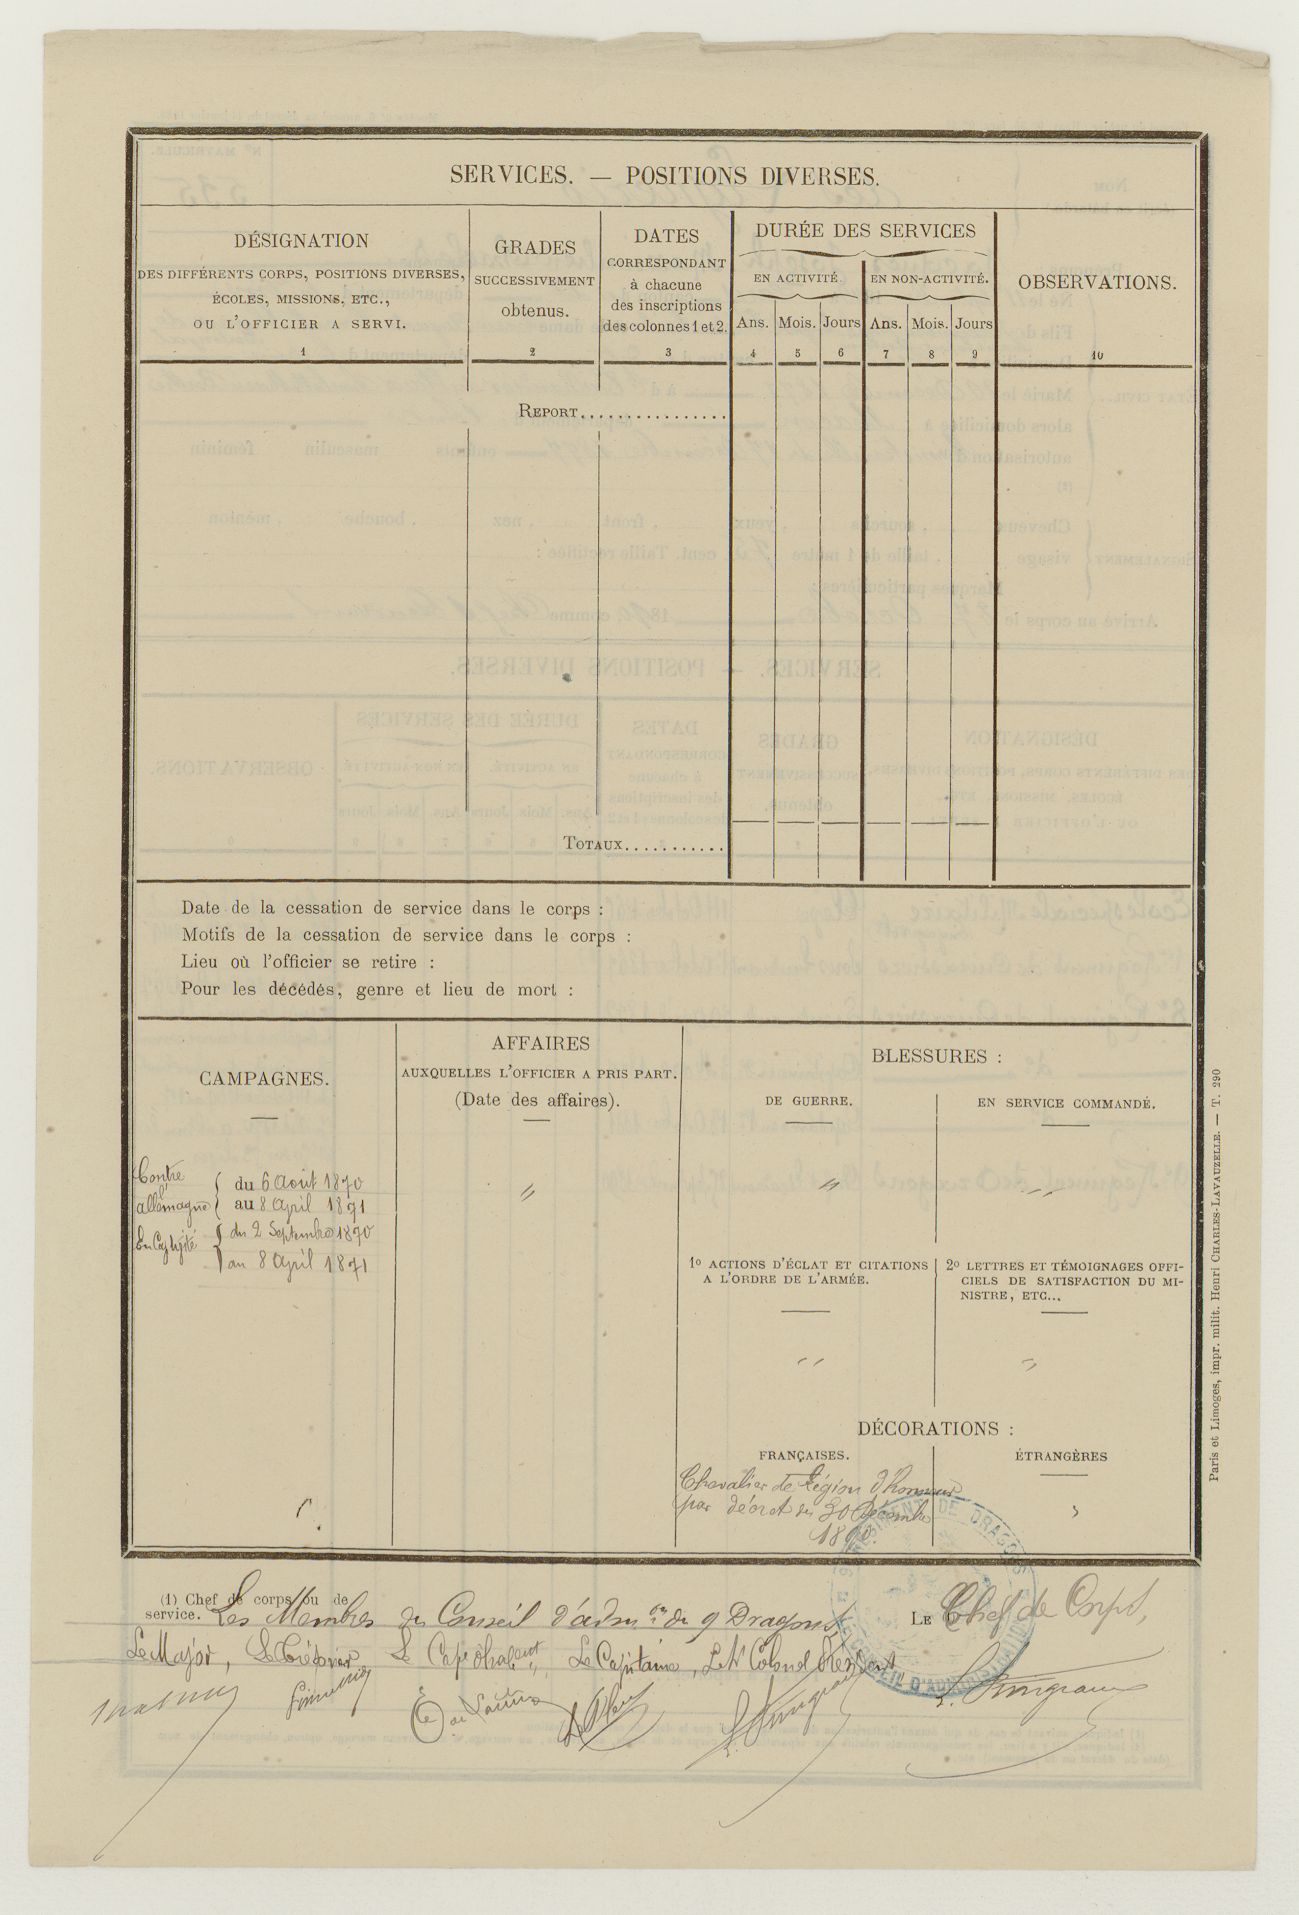 SERVICES. — POSITIONS DIVERSES.
DÉSIGNATION
DES DIFFÉRENTS CORPS, POSITIONS DIVERSES,
ÉCOLES, MISSIONS, ETC.,
OU L'OFFICIER A SERVI.
1
GRADES
SUCCESSIVEMENT
obtenus.
2
DATES
CORRESPONDANT
à chacune
des inscriptions
des colonnes 1 et 2.
3
DURÉE DES SERVICES
EN ACTIVITÉ.
EN NON-ACTIVITÉ.
Ans. Mois. Jours Ans. Mois. Jours
4 5 6 7 8 9
OBSERVATIONS.
10
REPORT................
TOTAUX...........
Date de la cessation de service dans le corps :
Motifs de la cessation de service dans le corps :
Lieu où l'officier se retire :
Pour les décédés, genre et lieu de mort :
CAMPAGNES.
Contre
l'
allemagne
du 6 Août 1870
au 8 April 1871
En Captivité
du 2 Septembre 1870
au 8 April 1871
AFFAIRES
AUXQUELLES L'OFFICIER A PRIS PART.
(Date des affaires).
"
BLESSURES :
DE GUERRE.
"
EN SERVICE COMMANDÉ.
"
1º ACTIONS D'ÉCLAT ET CITATIONS
A L'ORDRE DE L'ARMÉE.
"
2º LETTRES ET TÉMOIGNAGES OFFI-
CIELS DE SATISFACTION DU MI-
NISTRE, ETC...
"
DÉCORATIONS :
FRANÇAISES.
Chevalier de Légion d'honneur
par décret du 30 Décembre
1890.
ÉTRANGÈRES
"
Paris et Limoges, impr. milit. Henri CHARLES-LAVAUZELLE. — T. 290
(1) Chef de corps ou de
service.
Les Membres du Conseil d'adm on du 9 Dragons,
LE Chef de Corps,
Le Major, Le Trésorier Le Cap d'habent, Le Capitaine, Le Lt Colonel Président,
9e RÉGIMENT DE DRAGONS
CONSEIL D'ADMINISTRATION